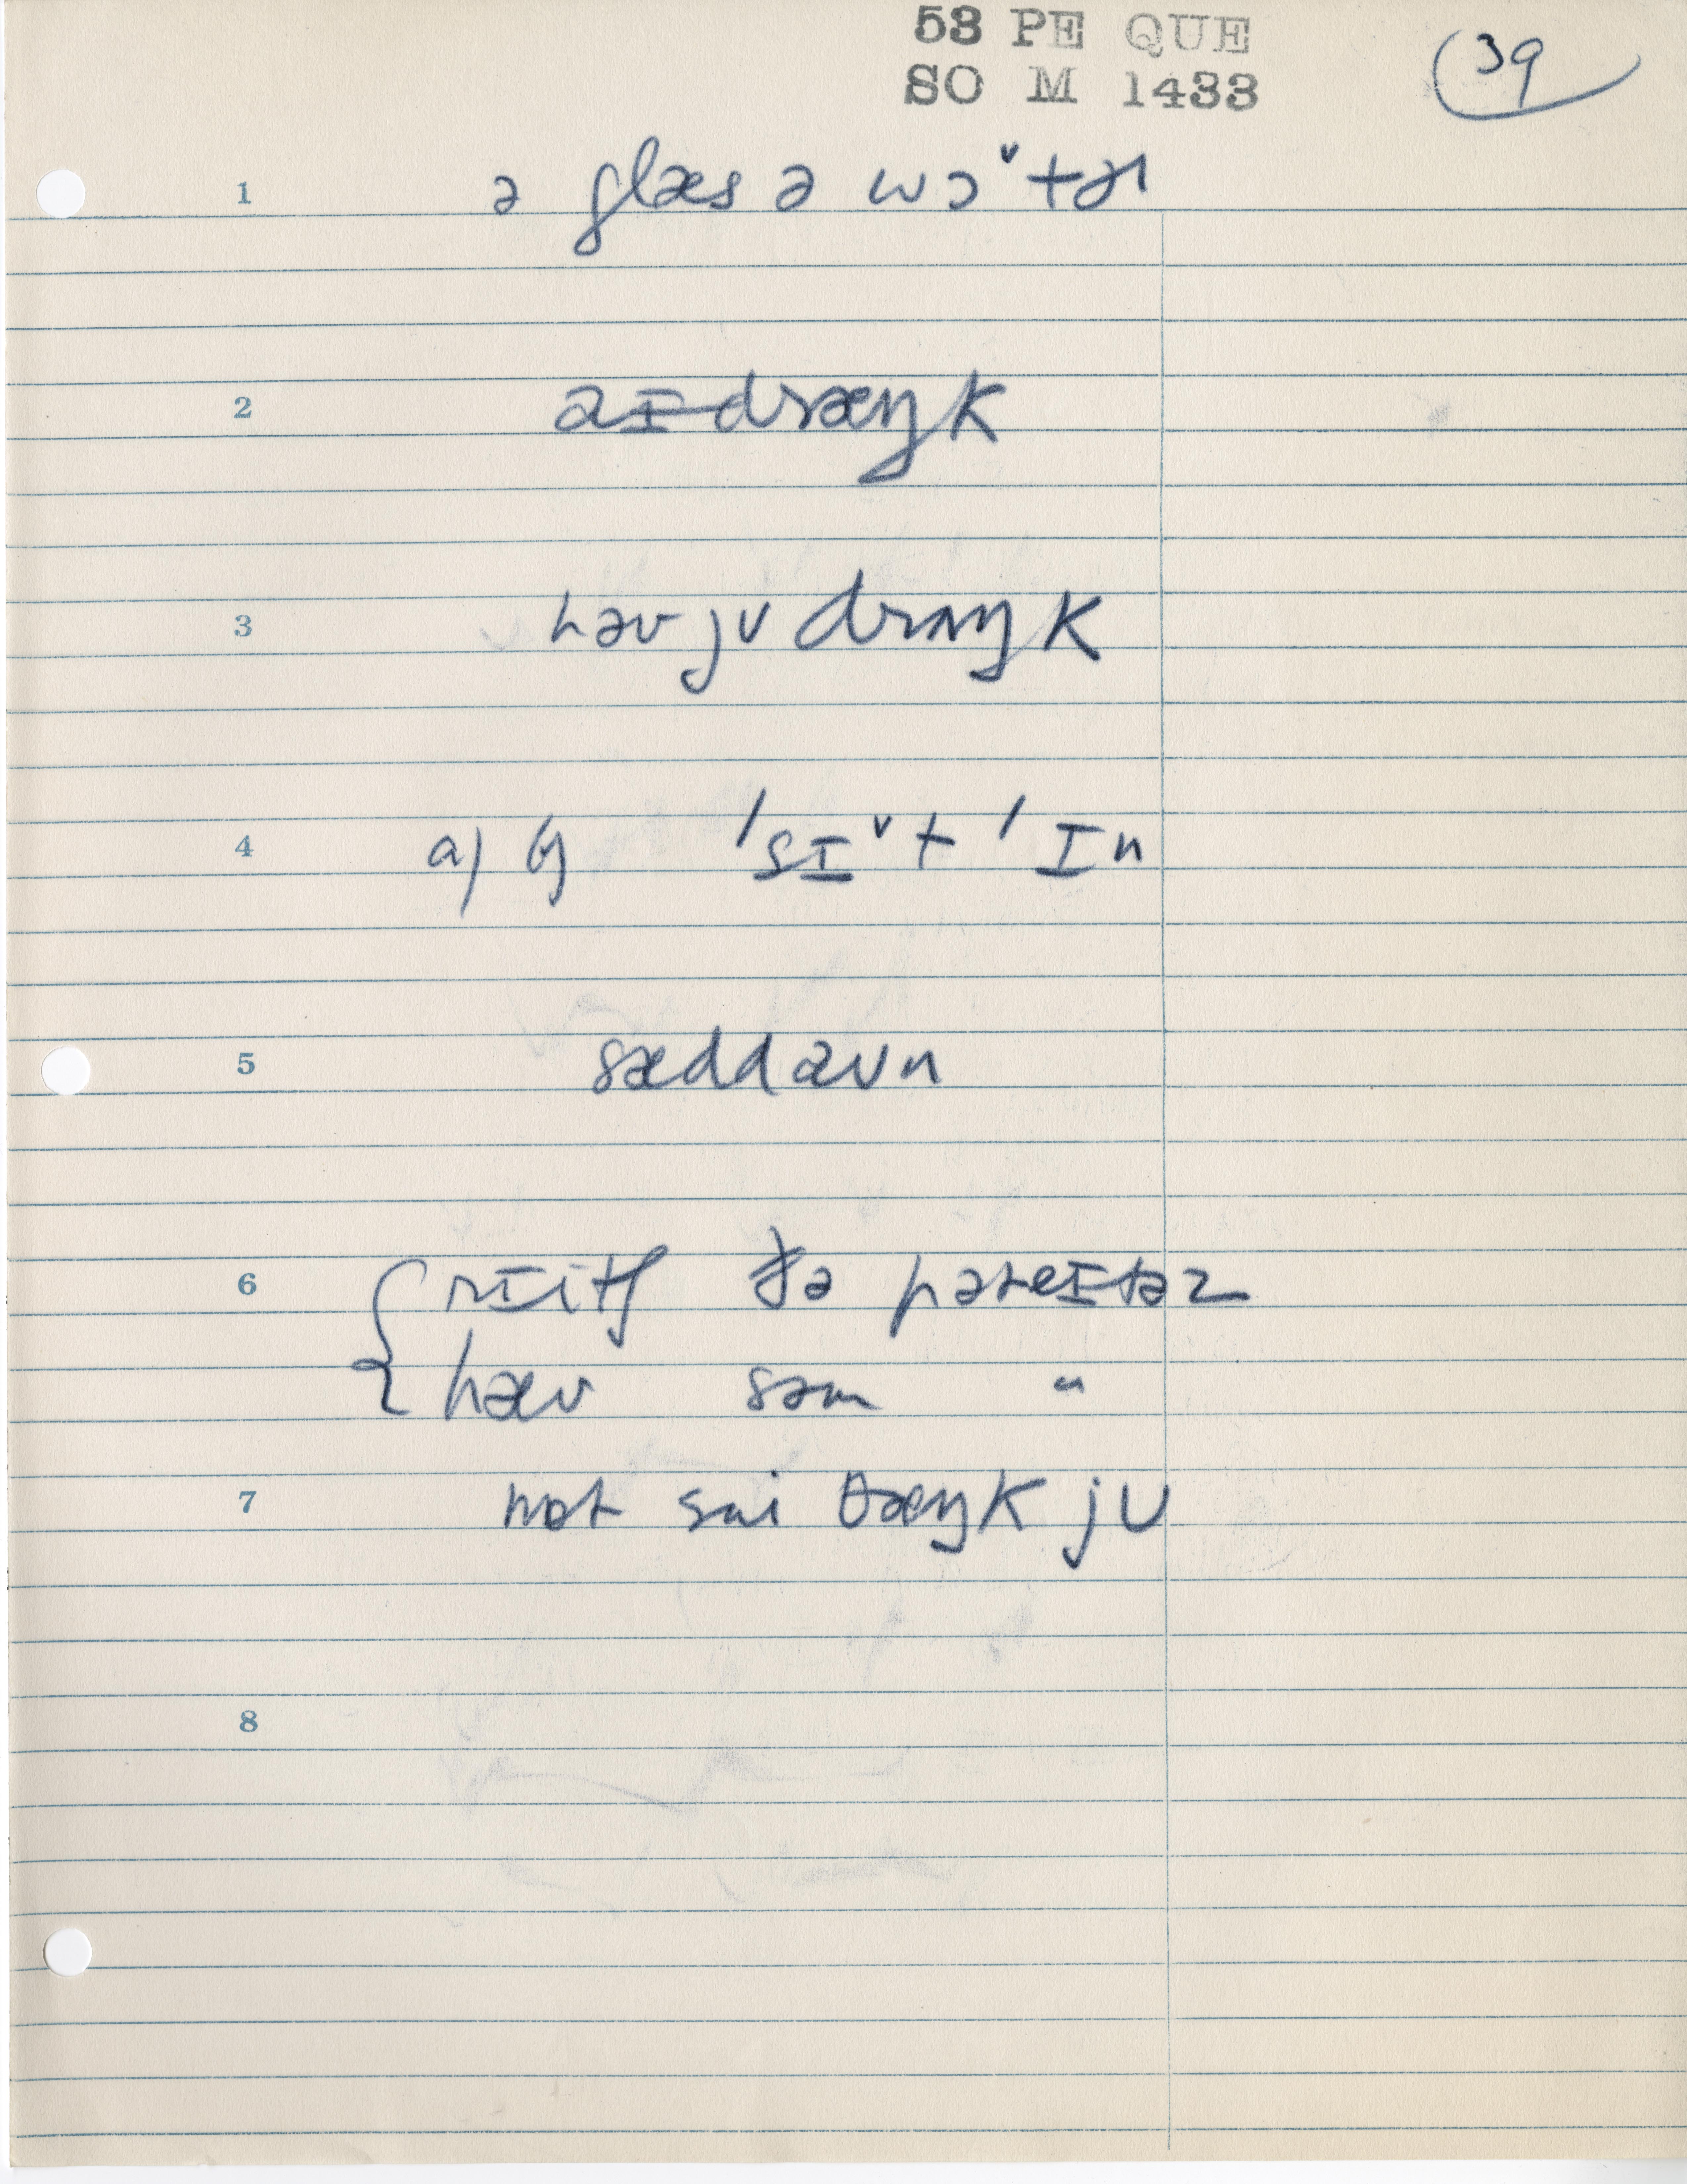 53 PE QUE
SO M 1433
39
1 ə glæs ə wɔˇtɚ
2 aɪ dræŋk
3 həv ju draŋk
4 a) b) ˈsɪˇt ˈɪn
5 sæd daun
6 { rɪitʃ ðə pəteɪtəz
hæv səm "
7 nɒt sai θæŋk ju
8